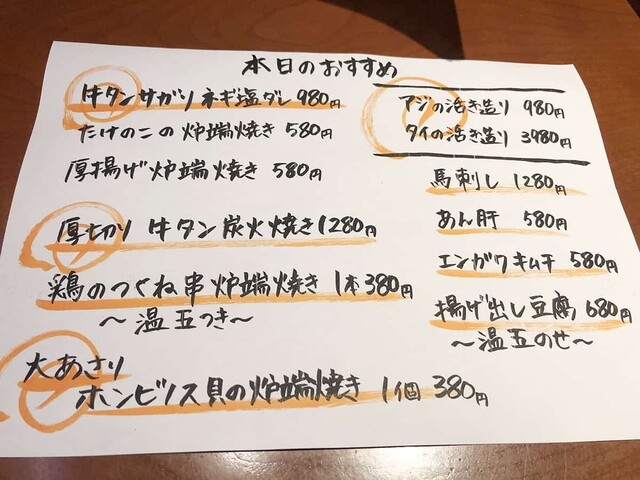 本日のおすすめ
牛タンサガリネギ塩ダレ 980円
たけのこの炉端焼き 580円
厚揚げ炉端焼き 580円
厚切り 牛タン炭火焼き 1280円
鶏のつくね串炉端焼き 1本380円
～温玉つき～
大あさり
ホンビノス貝の炉端焼き 1個 380円
アジの活き造り 980円
タイの活き造り 3980円
馬刺し 1280円
あん肝 580円
エンガワキムチ 580円
揚げ出し豆腐 680円
～温玉のせ～